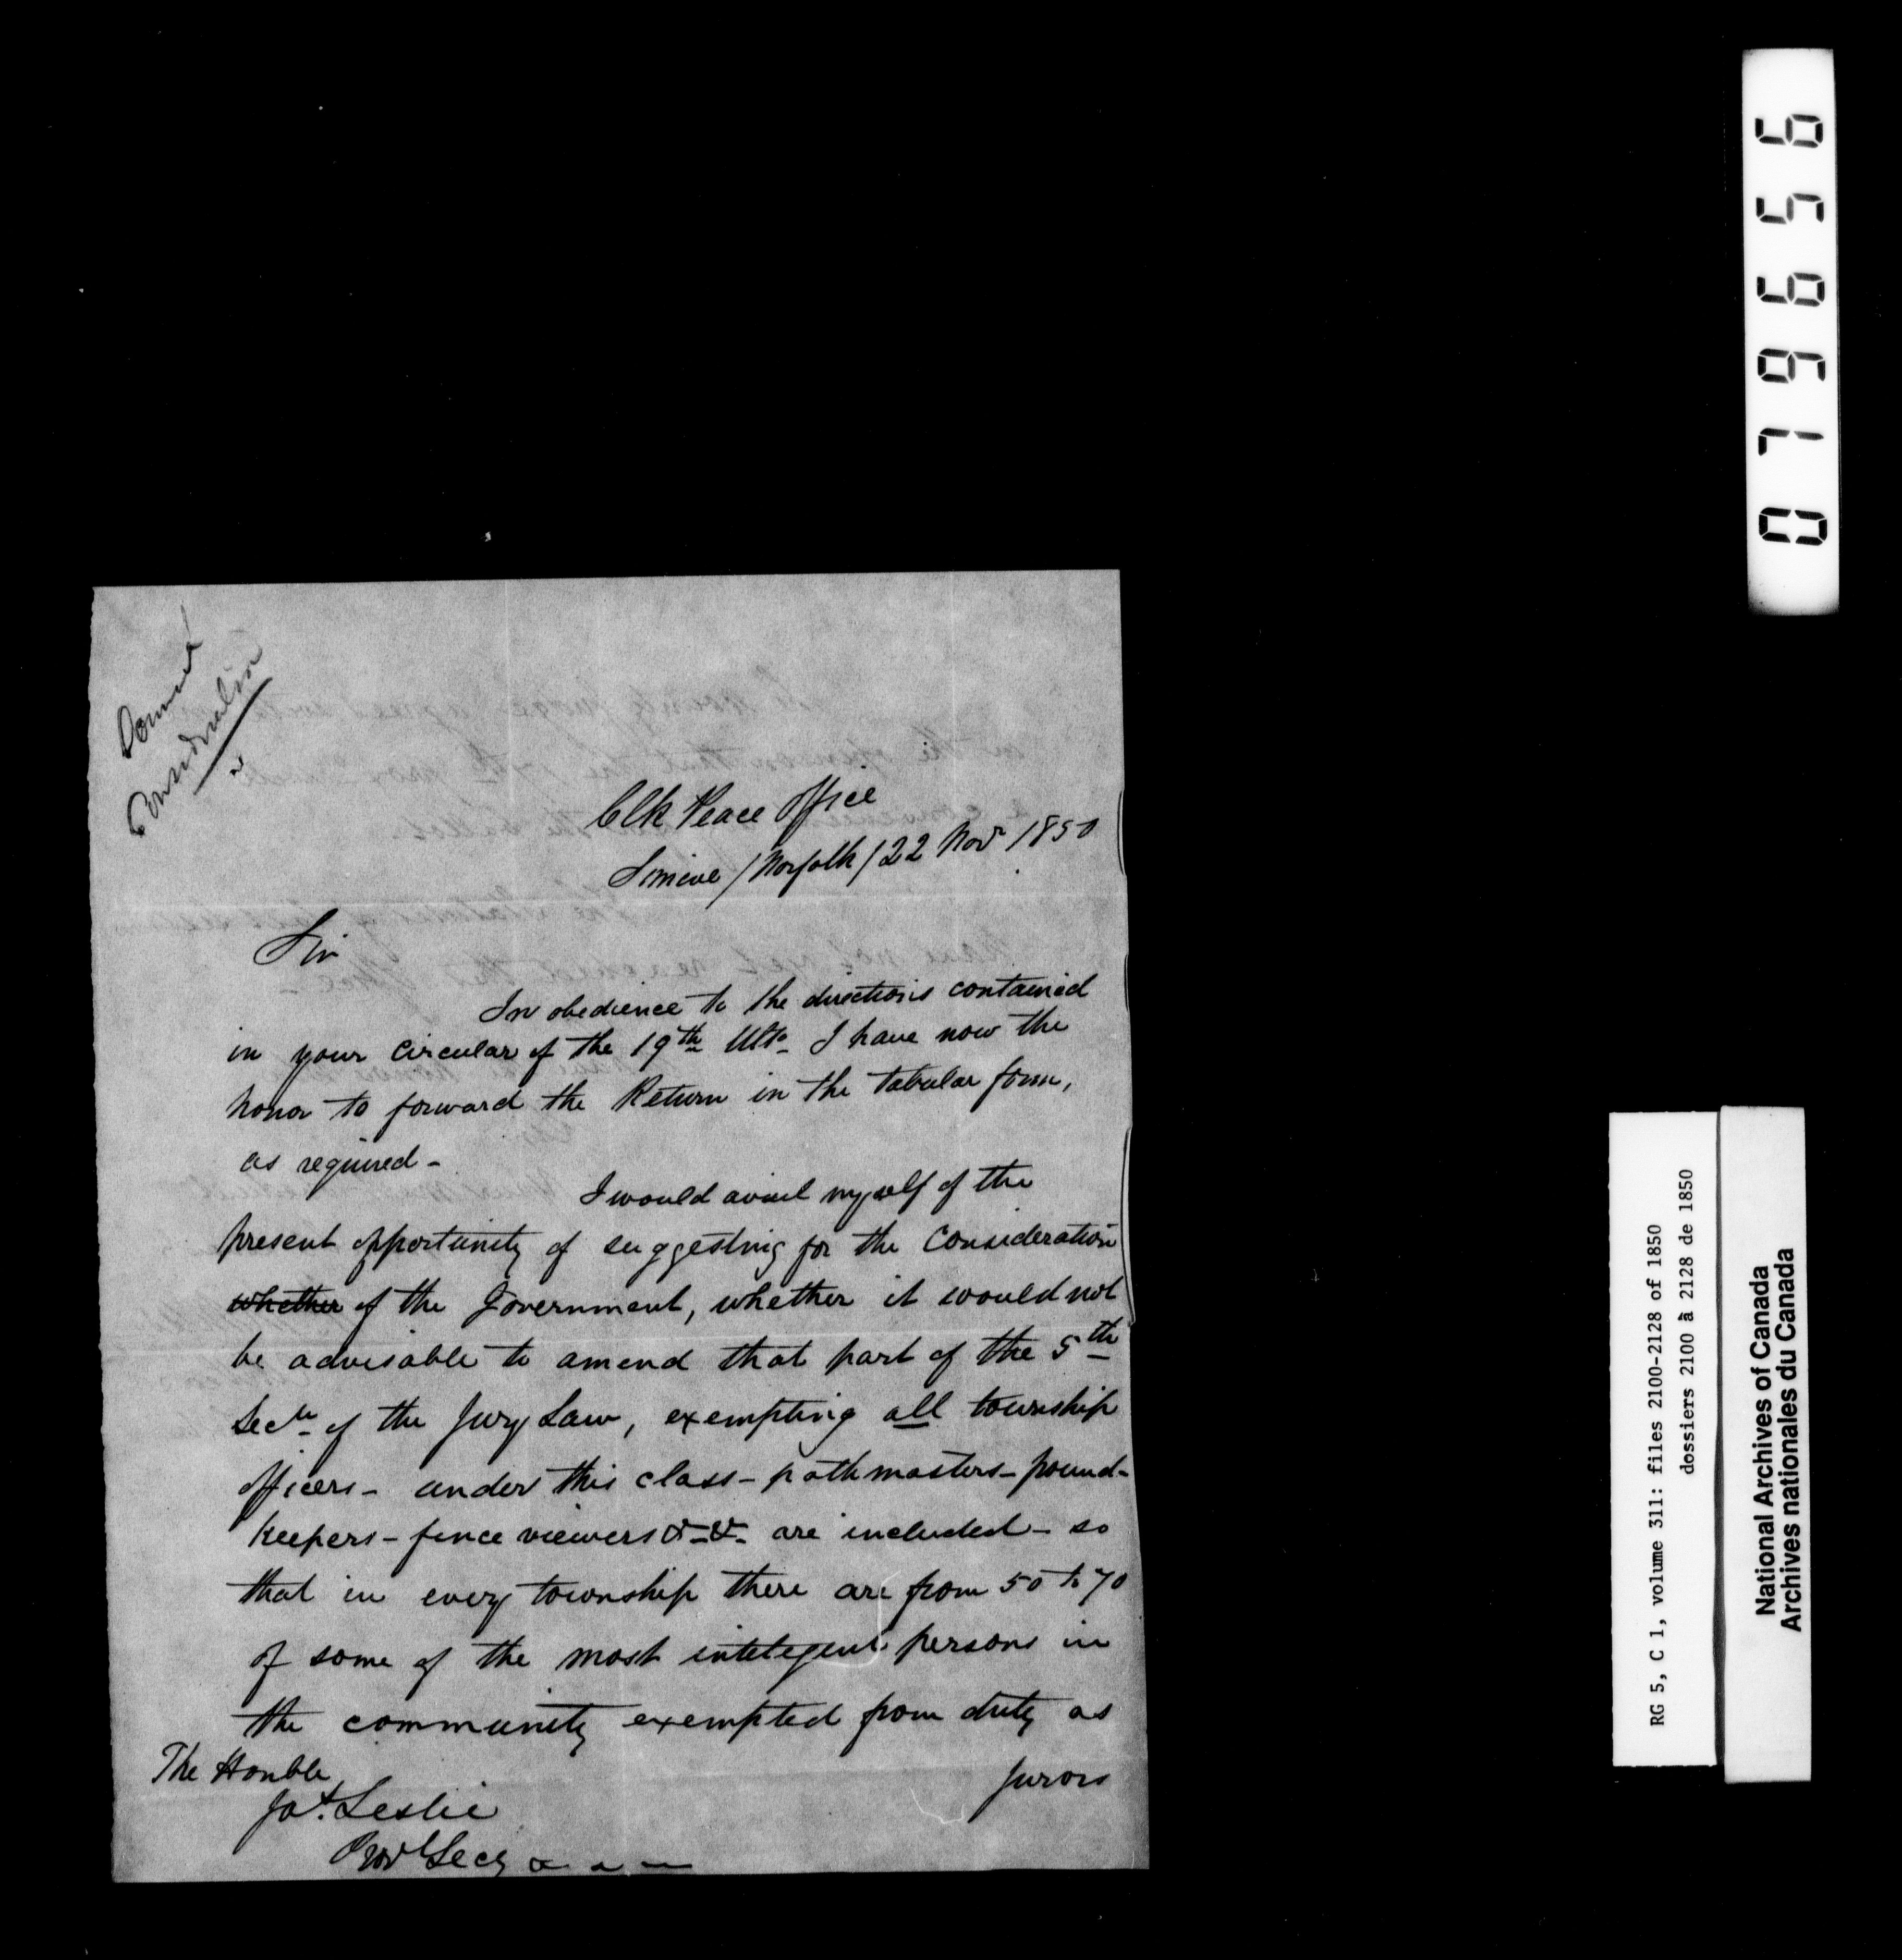 Consideration
Clk Peace Office
Simcoe / Norfolk / 22 Novr 1850
Sir
In obedience to the directions contained
in your Circular of the 19th Ulto I have now the
honor to forward the Return in the tabular form,
as required -
I would avail myself of the
present opportunity of suggesting for the Consideration
whether of the Government, whether it would not
be advisable to amend that part of the 5th
Sectn of the Jury Law, exempting all township
officers - under this class - pathmasters - pound-
keepers - fence viewers &c &c are included - so
that in every township there are from 50 to 70
of some of the most intelegent persons in
the community exempted from duty as
Jurors
The Honble
Jas. Leslie
Provl Secy
079656
RG 5, C 1, volume 311: files 2100-2128 of 1850
dossiers 2100 à 2128 de 1850
National Archives of Canada
Archives nationales du Canada